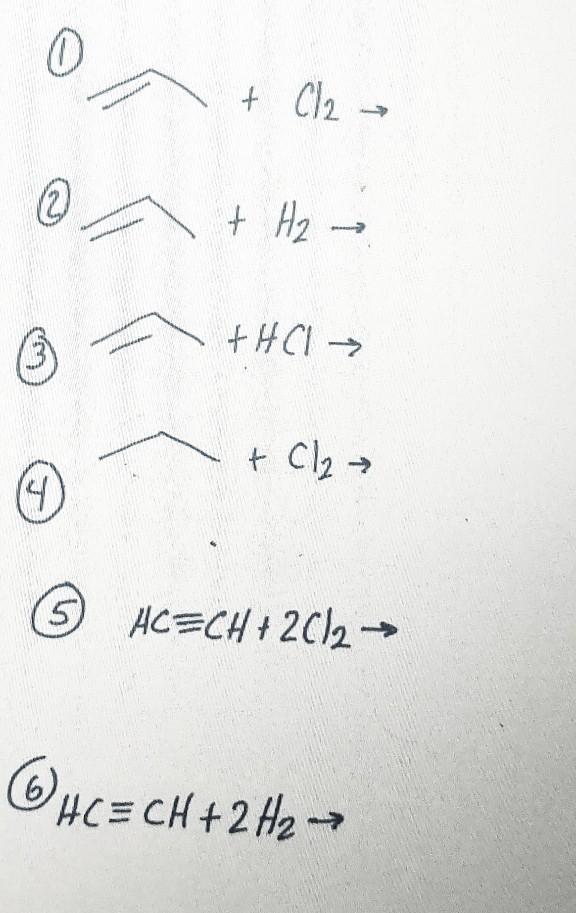 ① + Cl₂ →
② + H₂ →
③ + HCl →
④ + Cl₂ →
⑤ HC≡CH + 2Cl₂ →
⑥ HC≡CH + 2H₂ →